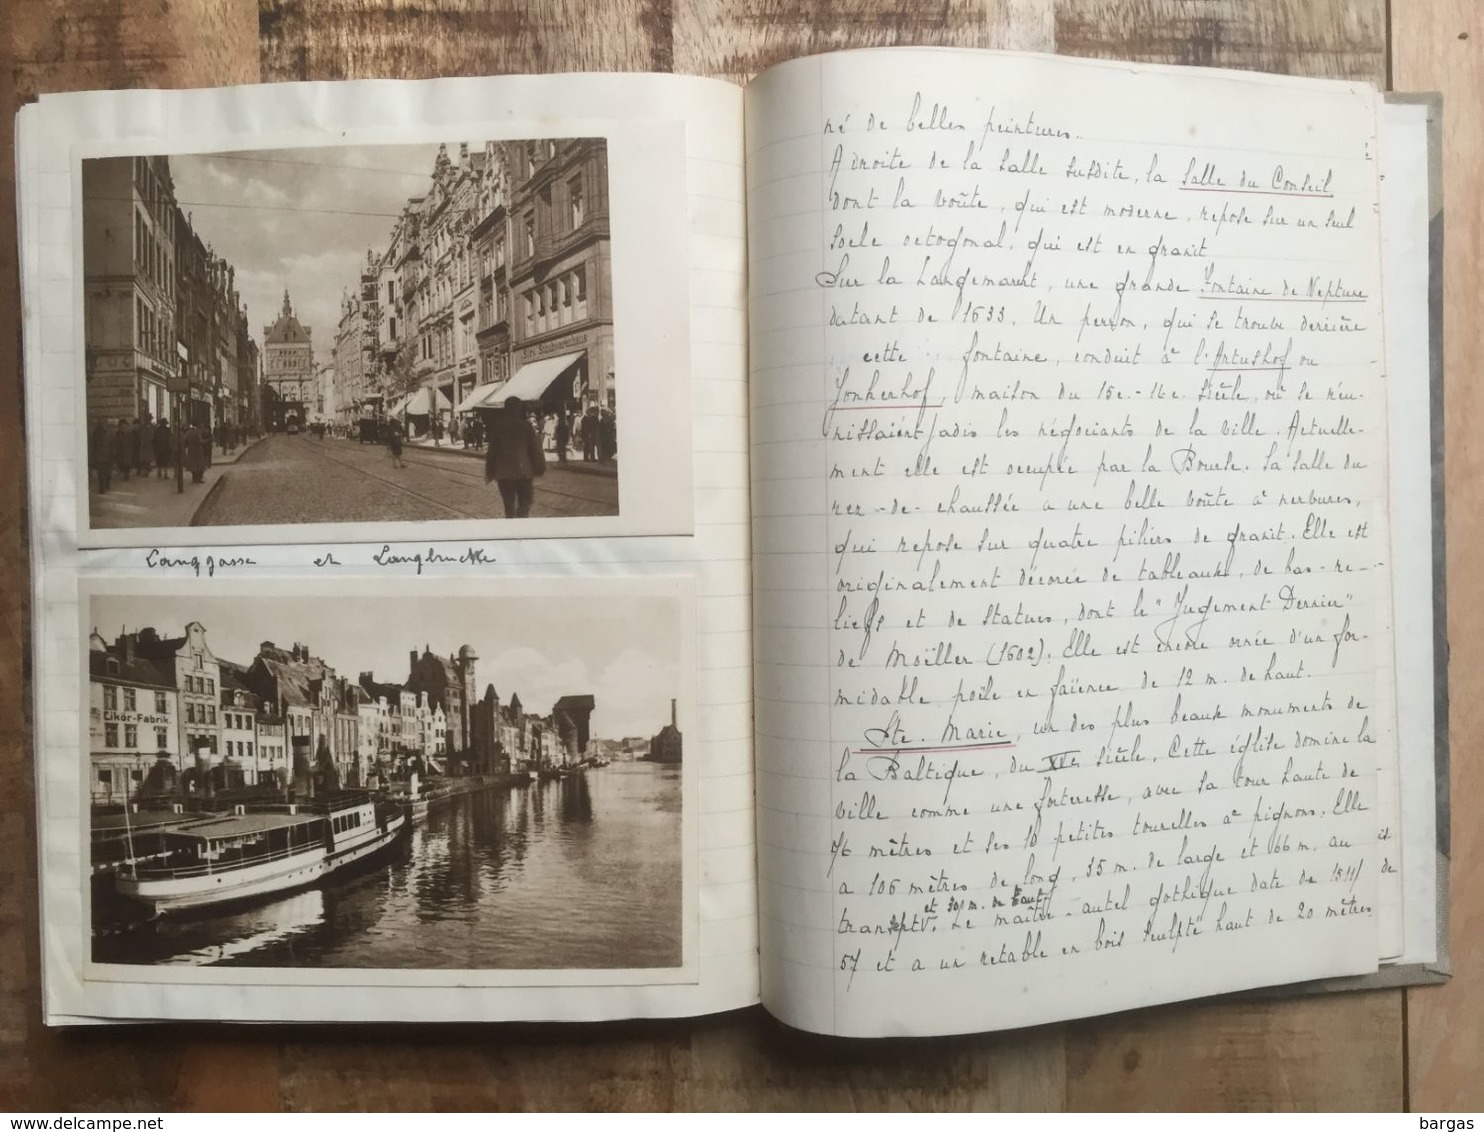 Langgasse et Langbrucke
Likör-Fabrik.
né de belles peintures.
A droite de la salle susdite, la Salle du Conseil
dont la voûte, qui est moderne, repose sur un seul
socle octogonal, qui est en granit
Sur la Langemarkt, une grande Fontaine de Neptune
datant de 1633. Un perron, qui se trouve derrière
cette fontaine, conduit à l'Artushof ou
Jonkerhof, maison du 15e.-16e. siècle, où se réu-
nissaient jadis les négociants de la ville. Actuelle-
ment elle est occupée par la Bourse. La salle du
rez-de-chaussée a une belle voûte à nervures,
qui repose sur quatre piliers de granit. Elle est
originalement décorée de tableaux, de bas-re-
liefs et de statues, dont le "Jugement Dernier"
de Moëller (1602). Elle est encore ornée d'un for-
midable poêle en faïence de 12 m. de haut.
Ste. Marie, un des plus beaux monuments de
la Baltique, du XVe siècle. Cette église domine la
ville comme une forteresse, avec sa tour haute de
76 mètres et ses 10 petites tourelles à pignons. Elle
a 105 mètres de long, 35 m. de large et 66 m. au
et 30 m. de haut
transept. Le maître-autel gothique date de 1511/
57 et a un retable en bois sculpté haut de 20 mètres
is.
de
bargas